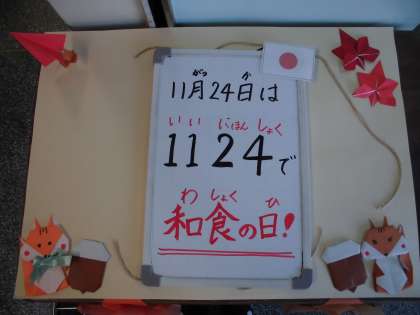 がつ か
11月24日は
いい にほん しょく
1124で
わ しょく ひ
和食の日!